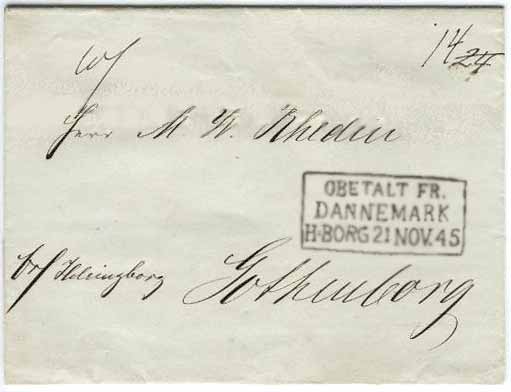 14/24
Herr M. W. Rheden
OBETALT FR.
DANNEMARK
H-BORG 21 NOV. 45
Helsingborg
Gothenborg